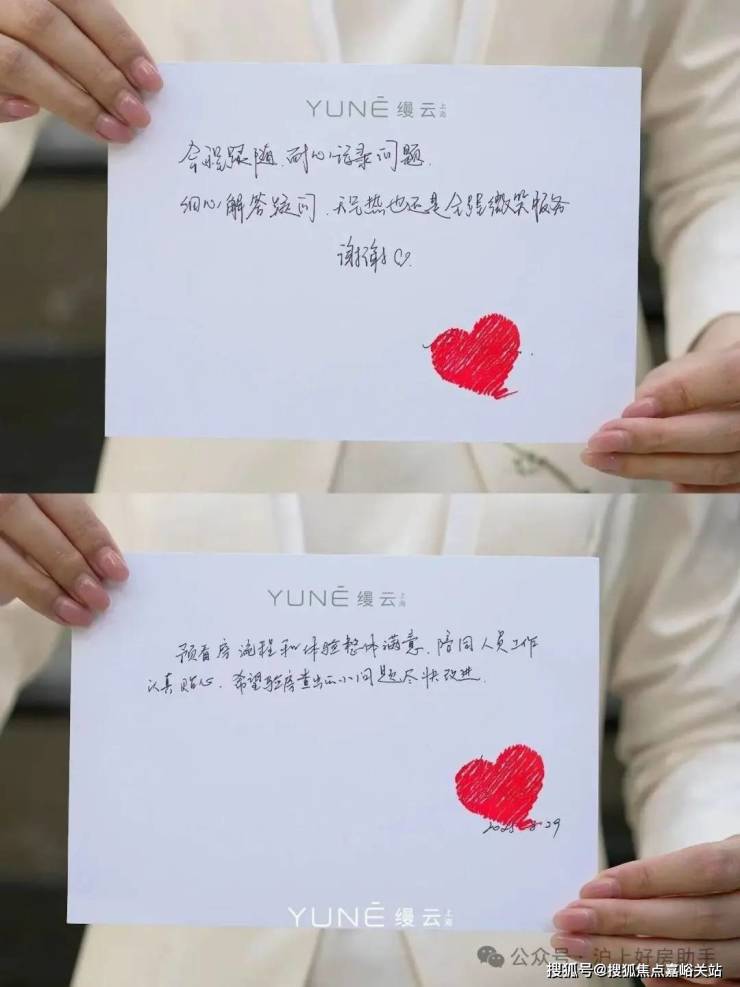 YUNĒ 缦云上海
全程跟随,耐心记录问题.
细心解答疑问,天气热也还是全程微笑服务
谢谢♡.
YUNĒ 缦云上海
预看房流程和体验整体满意,陪同人员工作
认真贴心,希望验房查出的小问题尽快改进.
2025-8-29
YUNĒ 缦云上海
公众号·沪上好房助手
搜狐号@搜狐焦点嘉峪关站